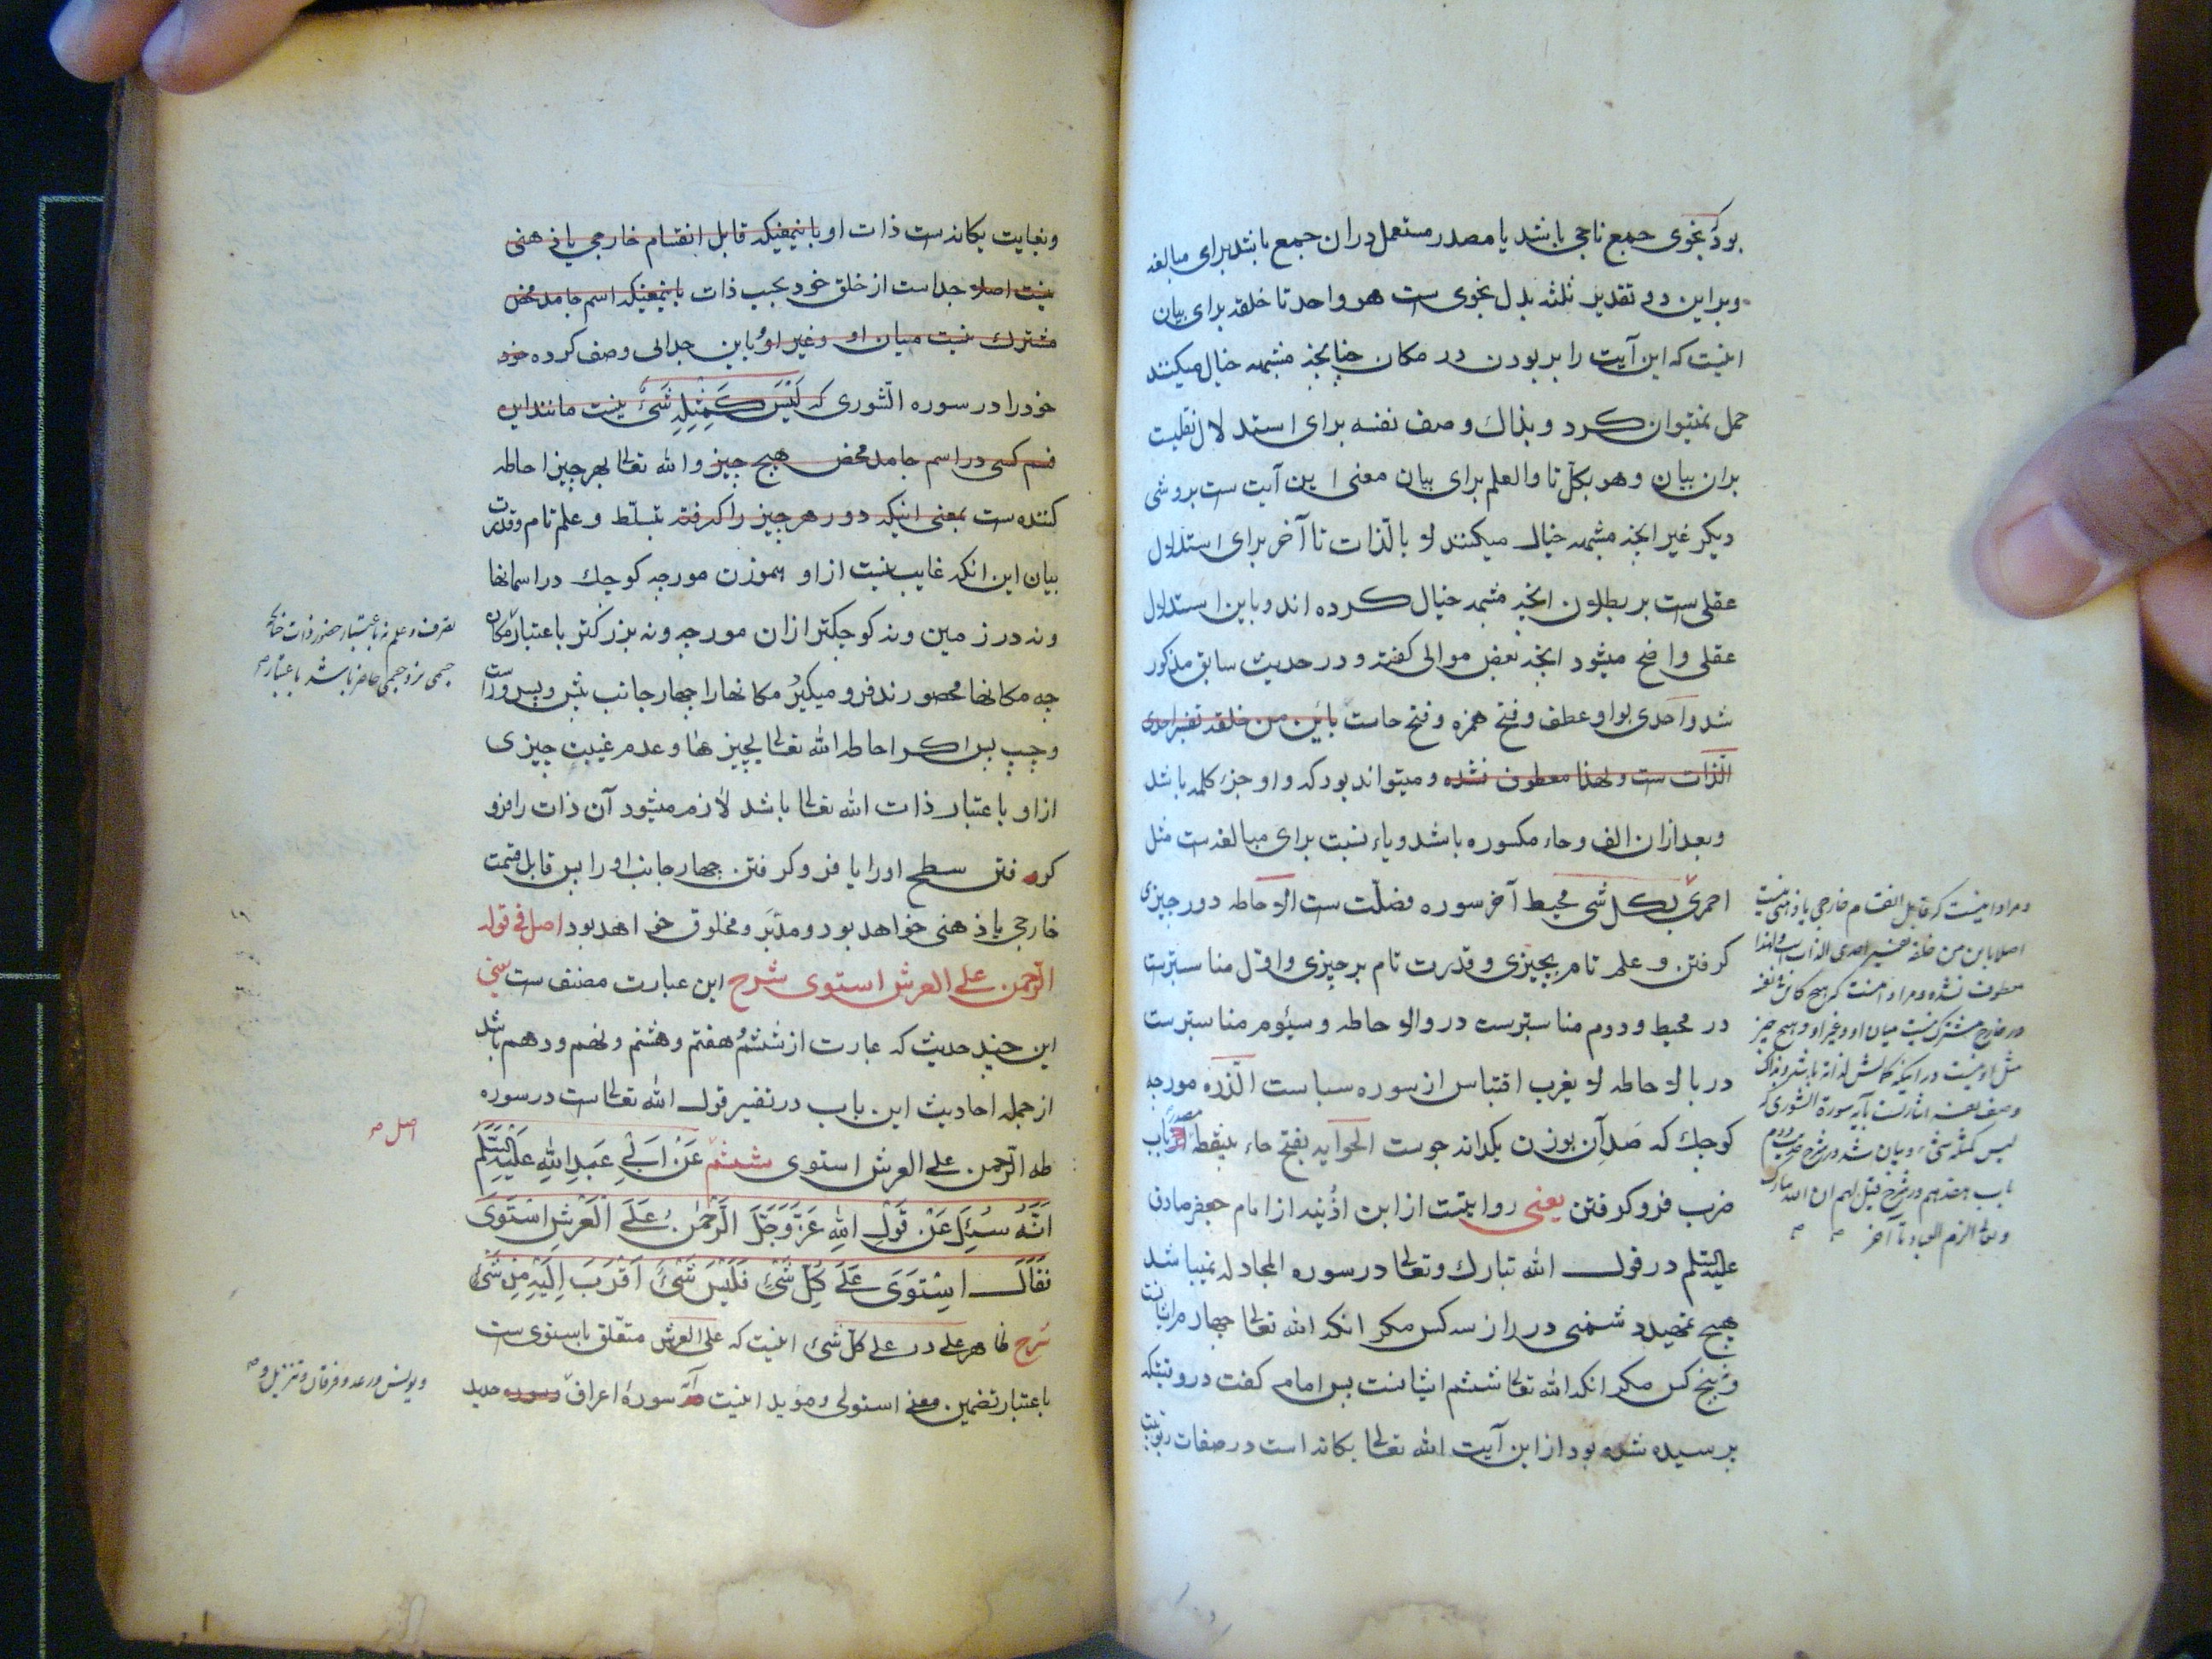 بود نجوی جمع ناجی باشد یا مصدر مستعمل دران جمع باشد برای مبالغه
و براین دو تقدیر ثلثه بدل نجوی ست هو واحد تا خلقه برای بیان
اینست که این آیت را بر بودن در مکان چنانچه مشبهه خیال میکنند
حمل نمیتوان کرد و بذلك وصف نفسه برای استدلال نقلیت
بران بیان و هو بکل تا والعلم برای بیان معنی این آیت ست بروشی
دیکر غیر انچه مشبهه خیال میکنند لا بالذات تا آخر برای استدلال
عقلی ست بر بطلان انچه مشبهه خیال کرده اند و باین استدلال
عقلی واضح میشود انچه بعض موالی کفته و در حدیث سابق مذکور
شد واحدی بواو عطف و فتح همزه و فتح حاست باین من خلقه تفسیر احدی
الذات ست ولهذا معطوف نشده و میتواند بود که واو جزء کلمه باشد
و بعد ازان الف و حاء مکسوره باشد و یاء نسبت برای مبالغه ست مثل
احمری بکل شی محیط آخر سوره فصلت ست الاحاطه دور چیزی
کرفتن و علم تام بچیزی و قدرت تام بر چیزی و اول مناسبترست
در محیط و دوم مناسبترست در والاحاطه و سیوم مناسبترست
در بالاحاطه لا یعزب اقتباس از سوره سباست الذره مورچه
کوچك که صد آن بوزن یکدانه جوست الحوایه بفتح حاء بینقطه مصدر باب
ضرب فرو کرفتن یعنی روایتست از ابن اذینه از امام جعفر صادق
علیه السلم در قول الله تبارك و تعالی در سوره المجادله نمیباشد
هیچ تمهید دشمنی در راز سه کس مکر انکه الله تعالی چهارم ایشانست
و پنج کس مکر انکه الله تعالی ششم ایشانست پس امام کفت در وقتیکه
پرسیده شده بود از این آیت الله تعالی یکانه است در صفات ربوبیت
و مراد اینست که قابل انقسام خارجی یا ذهنی نیست
اصلا باین من خلقه تفسیر احدی الذات ست ولهذا
معطوف نشده و مراد اینست که هیچ
در خارج مشترك نیست میان او و غیر او و هیچ چیز
مثل او نیست در اینکه
وصف نفسه اشارتست بآیه سورة الشوری که
لیس کمثله شیء و بیان شد در شرح حدیث دوم
باب هفدهم در شرح
تا آخر
و بغایت یکانه ست ذات او باینمعنیکه قابل انقسام خارجی یا ذهنی
نیست اصلا جداست از خلق خود بحسب ذات باینمعنیکه اسم جامد محض
مشترك نیست میان او و غیر او و باین جدایی وصف کرده خود
خودرا در سوره الشوری که لَیْسَ کَمِثْلِهِ شَیْءٌ نیست مانند این
قسم کسی در اسم جامد محض هیچ چیز والله تعالی بهر چیز احاطه
کننده ست بمعنی اینکه دور هر چیز را کرفته بتسلط و علم تام و قدرت
بیان این انکه غایب نیست از او هموزن مورچه کوچك در اسمانها
ونه در زمین ونه کوچکتر ازان مورچه ونه بزرکتر باعتبار مکان
چه مکانها محصورند فرو میکیرد مکانهارا چهار جانب پیش و پس و راست
و چپ پس اکر احاطه الله تعالی بچیزها و عدم غیبت چیزی
ازاو باعتبار ذات الله تعالی باشد لازم میشود آن ذات را فرو
کرفتن سطح اورا یا فرو کرفتن چهار جانب اورا پس قابل قسمت
خارجی یا ذهنی خواهد بود و مدبَّر و مخلوق خواهد بود اصل فی قوله
الرحمن علی العرش استوی شرح این عبارت مصنف ست یعنی
این چند حدیث که عبارت از ششم و هفتم و هشتم و نهم و دهم باشد
از جمله احادیث این باب در تفسیر قول الله تعالی ست در سوره
طه الرّحمن علی العرش استوی ششم عَنْ اَبِی عَبدِ اللهِ عَلَیْهِ السَّلَمُ
اَنَّهُ سُئِلَ عَنْ قَوْلِ اللهِ عَزَّوَجَلَّ الرَّحْمٰنُ عَلَی الْعَرْشِ اسْتَوَی
فَقَالَ اسْتَوَی عَلَی کُلِّ شَیْءٍ فَلَیْسَ شَیْءٌ اَقْرَبَ اِلَیْهِ مِنْ شَیْءٍ
شرح ظاهر علی در علی کل شیء اینست که علی العرش متعلق باستوی ست
باعتبار تضمین معنی استولی و مؤید اینست سورهٔ اعراف وسوره حدید
تصرف و علم نه باعتبار حضور ذات چنانچه
جسمی نزد جسمی حاضر باشد باعتبار
اصل
و یونس و رعد و فرقان و تنزیل و